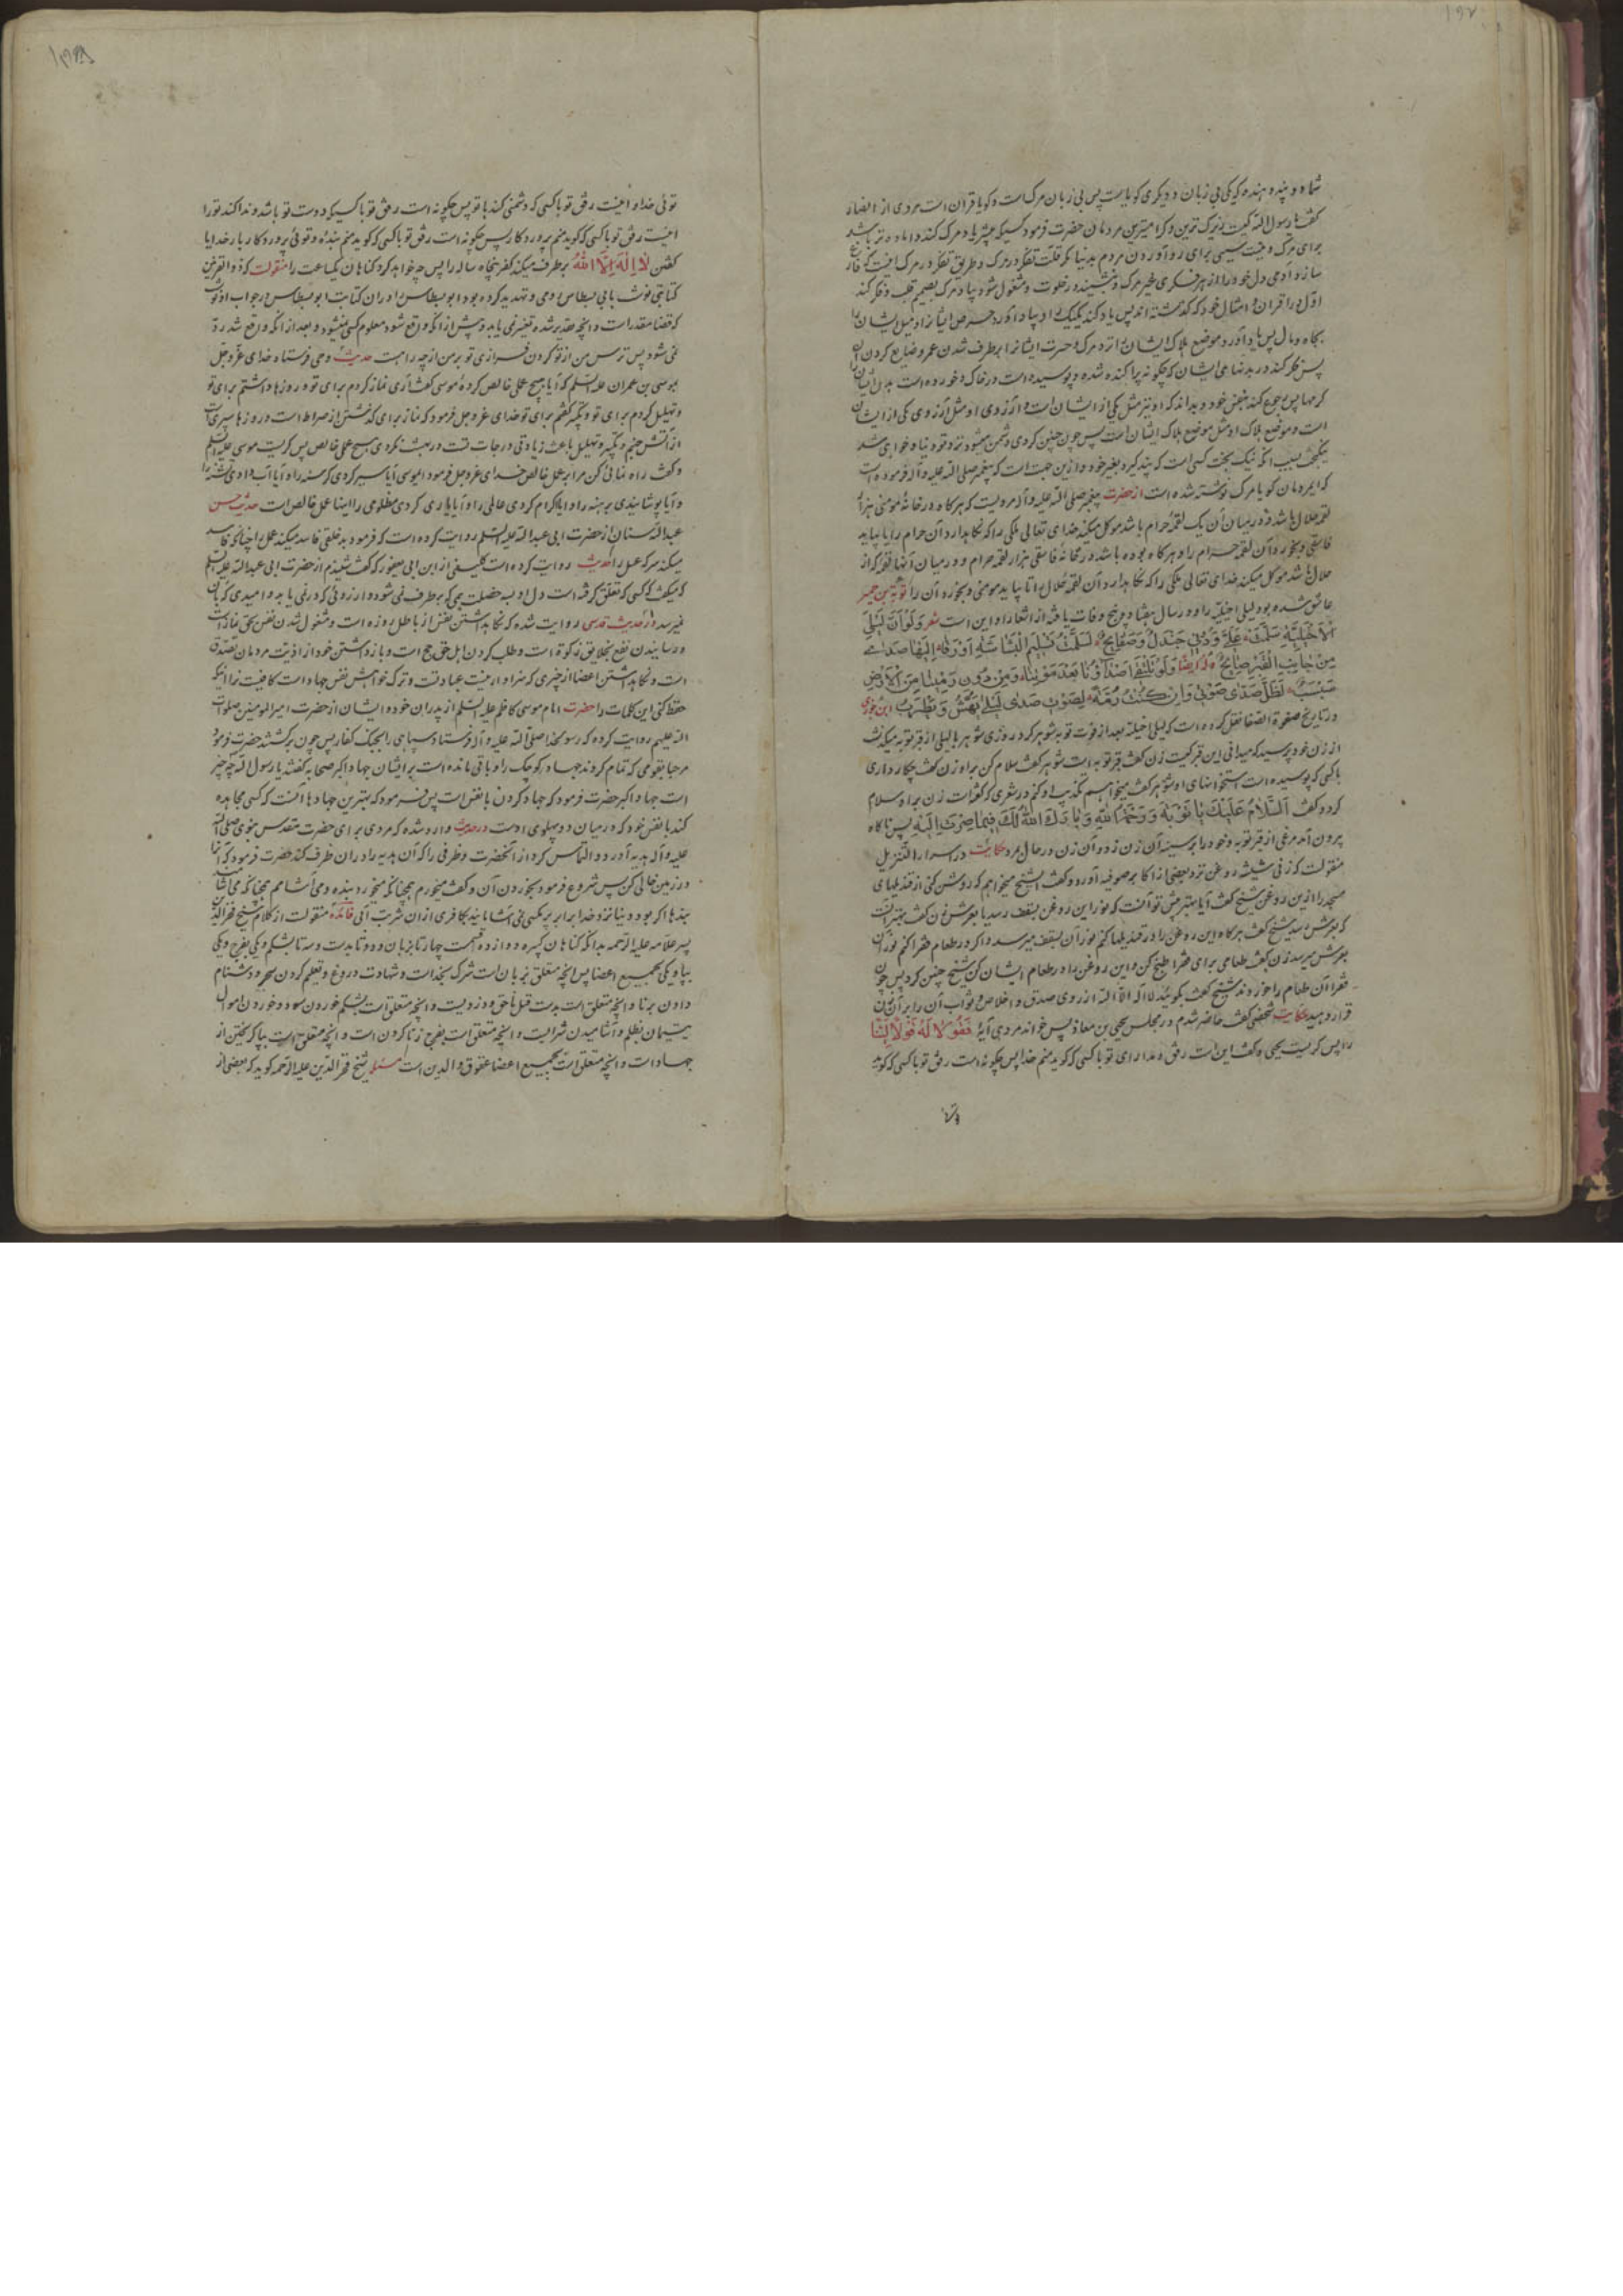 شما دو پند دهنده که یکی بی زبان و دیگری کویاست پس بی زبان مرک است و کویا قرآن است مردی از انصار
کفت یا رسول الله کیست بزرک ترین و کرامی‌ترین مردمان حضرت فرمود کسیکه بیشتر یاد مرک کند و اماده‌تر باشد
برای مرک و نیست سببی برای رو آوردن مردم بدنیا مکر قلت تفکر در مرک و طریق تفکر در مرک اینست که فارغ
سازد آدمی دل خود را از هر فکری بغیر مرک و بنشیند در خلوت و مشغول شود بیاد مرک بصمیم قلب و فکر کند
اوّل در اقران و امثال خود که کذشته‌اند پس یاد کند یکیک را و بیاد آورد حرص ایشانرا و میل ایشان را
بجاه و مال پس یاد آورد موضع هلاک ایشان را نزد مرک و حسرت ایشانرا بر طرف شدن عمر و ضایع کردن آن
پس فکر کند در بدنهای ایشان که چکونه پراکنده شده و پوسیده است در خاک و خورده است بدن ایشان را
کرمها پس رجوع کند بنفس خود و بداند که او نیز مثل یکی از ایشان است و آرزوی او مثل آرزوی یکی از ایشان
است و موضع هلاک او مثل موضع هلاک ایشان است پس چون چنین کردی دشمن میشود نزد تو دنیا و خواهی شد
نیکبخت بسبب آنکه نیک بخت کسی است که پند کیرد بغیر خود و ازین جهت است که پیغمبر صلی الله علیه و آله فرموده است
که ایمردمان کویا مرک نوشته شده است از حضرت پیغمبر صلی الله علیه و آله مرویست که هرکاه در خانهٔ مومنی هزار
لقمهٔ حلال باشد و در میان آن یک لقمهٔ حرام باشد موکل میکند خدای تعالی ملکی را که نکاهدارد آن حرام را تا بیاید
فاسقی و بخورد آن لقمهٔ حرام را و هرکاه بوده باشد در خانهٔ فاسقی هزار لقمهٔ حرام و در میان آنها لقمهٔ از
حلال باشد موکل میکند خدای تعالی ملکی را که نکاهدارد آن لقمهٔ حلال را تا بیاید مومنی و بخورد آن را توبة بن حمیر
عاشق شده بود لیلی اخیلیّه را و در سال هفتاد و پنج وفات یافته از اشعار او این است شعر وَلَوْ أَنَّ لَیْلَی
الْأَخْیَلِیَّةَ سَلَّمَتْ عَلَیَّ وَدُونِی جَنْدَلٌ وَصَفَایِحُ لَسَلَّمْتُ تَسْلِیمَ الْبَشَاشَةِ أَوْ زَقَا إِلَیْهَا صَدًی
مِنْ جَانِبِ الْقَبْرِ صَایِحُ وله ایضا وَلَوْ تَلْتَقِی أَصْدَاؤُنَا بَعْدَ مَوْتِنَا وَمِنْ دُونِ رَمْسَیْنَا مِنَ الْأَرْضِ
سَبْسَبُ لَظَلَّ صَدَی صَوْتِی وَإِنْ کُنْتُ رُمَّةً لِصَوْتِ صَدَی لَیْلَی یَهُشُّ وَیَطْرَبُ ابن جوزی
در تاریخ صفوة الصفا نقل کرده است که لیلی اخیلیه بعد از فوت توبه شوهر کرد روزی شوهر با لیلی از قبر توبه میکذشت
از زن خود پرسید که میدانی این قبر کیست زن کفت قبر توبه است شوهر کفت سلام کن بر او زن کفت چکار داری
با کسی که پوسیده است استخوانهای او شوهر کفت میخواهم تکذیب او کنم در شعری که کفته است زن بر او سلام
کرد و کفت السَّلَامُ عَلَیْكَ یَا تَوْبَةُ وَرَحْمَةُ اللهِ وَبَارَكَ اللهُ لَكَ فِیمَا صِرْتَ إِلَیْهِ پس ناکاه
بیرون آمد مرغی از قبر توبه و خود را بر سینهٔ آن زن زد و آن زن در حال مرد حکایت در اسرار التنزیل
منقولست که زنی شیشهٔ روغن نزد بعضی از اکابر صوفیه آورد و کفت یا شیخ میخواهم که روشن کنی از قندیلهای
مسجد را ازین روغن شیخ کفت آیا بهتر پیش تو آنست که نور این روغن بسقف رسد یا بعرش زن کفت بهتر آنست
که بعرش رسد شیخ کفت هرکاه این روغن را در قندیلها کنم نور آن بسقف میرسد و اکر در طعام فقرا کنم نور آن
بعرش میرسد زن کفت طعامی برای فقرا طبخ کن و این روغن را در طعام ایشان کن شیخ چنین کرد پس چون
فقرا آن طعام را خوردند شیخ کفت بکویید لا اله الا الله از روی صدق و اخلاص و ثواب آن را برای آن زن
قرار دهید حکایت شخصی کفت حاضر شدم در مجلس یحیی بن معاذ پس خواند مردی آیهٔ فَقُولَا لَهُ قَوْلًا لَیِّنًا
را پس کریست یحیی و کفت این است رفق و مدارای تو با کسی که کوید منم خدا پس چکونه است رفق تو با کسی که کوید
توئی خدا و اینست رفق تو با کسی که دشمنی کند با تو پس چکونه است رفق تو با کسیکه دوست تو باشد و ندا کند تو را
اینست رفق تو با کسی که کوید منم پروردکار پس چکونه است رفق تو با کسی که کوید منم بنده و توئی پروردکار بار خدایا
کفتن لَا إِلَهَ إِلَّا اللهُ بر طرف میکند کفر پنجاه ساله را پس چه خواهد کرد کناهان یکساعت را منقولست که ذو القرنین
کتابتی نوشت بابی بسطاس رومی و تهدید کرده بود ابو بسطاس را در آن کتابت ابو بسطاس در جواب او نوشت
که قضا مقدر است و آنچه مقدر شده تغییر نمی یابد و پیش از آنکه واقع شود معلوم کسی نمیشود و بعد از آنکه واقع شد رد
نمی شود پس ترس من از تو کردن فرازی تو بر من از چه راه است حدیث وحی فرستاد خدای عز و جل
بموسی بن عمران علیه السلام که آیا هیچ عمل خالص کردهٔ موسی کفت آری نماز کردم برای تو و روزها داشتم برای تو
و تهلیل کردم برای تو و تکبیر کفتم برای تو خدای عز و جل فرمود که نماز برای کذشتن از صراط است و روزها سپری است
از آتش جهنم و تکبیر و تهلیل باعث زیادتی درجات تست در بهشت نکردی هیچ عمل خالص پس کریست موسی علیه السلام
و کفت راه نمائی کن مرا بر عمل خالص خدای عز و جل فرمود ایموسی آیا سیر کردی کرسنه را و آیا آب دادی تشنه را
و آیا پوشانیدی برهنه را و آیا اکرام کردی عالمی را و آیا یاری کردی مظلومی را اینها عمل خالص است حدیث حسن
عبدالله سنان از حضرت ابی عبدالله علیه السلم روایت کرده است که فرمود بد خلقی فاسد میکند عمل را چنانکه فاسد
میکند سرکه عسل را حدیث روایت کرده است کلینی از ابن ابی یعفور که کفت شنیدم از حضرت ابی عبدالله علیه السلم
که میکفت که کسی که تعلق کرفته است دل او بسه خصلت همی که بر طرف نمی شود و آرزوئی که در نمی یابد و امیدی که بآن
نمیرسد و از حدیث قدسی روایت شده که نکاهداشتن نفس از باطل روزه است و مشغول شدن نفس بحق نماز است
و رسانیدن نفع بخلایق زکوة است و طلب کردن اهل حق حج است و باز داشتن خود از اذیّت مردمان تصدّق
است و نکاهداشتن اعضا از چیزی که سزاوار نیست عبادتست و ترک خواهش نفس جهاد است کافیست ترا اینکه
حفظ کنی این کلمات را حضرت امام موسی کاظم علیه السلم از پدران خود و ایشان از حضرت امیر المومنین صلوات
الله علیهم روایت کرده که رسول خدا صلی الله علیه و آله فرستاد سپاهی را بجنک کفار پس چون برکشتند حضرت فرمود
مرحبا بقومی که تمام کردند جهاد کوچک را و باقی مانده است بر ایشان جهاد اکبر صحابه کفتند یا رسول الله چه چیز
است جهاد اکبر حضرت فرمود که جهاد کردن با نفس است پس فرمود که بهترین جهادها آنست که کسی مجاهده
کند با نفس خود که در میان دو پهلوی اوست در حدیث وارد شده که مردی برای حضرت مقدس نبوی صلی الله
علیه و آله هدیه آورد و التماس کرد از آنحضرت ظرفی را که آن هدیه را در آن ظرف کند حضرت فرمود که آنرا
در زمین خالی کن پس شروع فرمود بخوردن آن و کفت میخورم همچنانکه میخورد بنده و می آشامم همچنانکه می آشامد
بنده اکر بود دنیا نزد خدا برابر پر مکسی نمی آشامانید بکافری از آن شربت آبی فائده منقولست از کلام شیخ فخر الدین
پسر علامه علیه الرحمه بدانکه کناهان کبیره دوازده قسم است چهار تا بزبان و دو تا بدست و سه تا بشکم و یکی بفرج و یکی
بپا و یکی بجمیع اعضا پس آنچه متعلق بزبان است شرک بخداست و شهادت دروغ و تعلیم کردن سحر و دشنام
دادن بزنا و آنچه متعلق است بدست قتل ناحق و دزدیست و آنچه متعلق است بشکم خوردن سود و خوردن اموال
یتیمان بظلم و آشامیدن شرابست و آنچه متعلق است بفرج زنا کردن است و آنچه متعلق است بپا کریختن از
جهاد است و آنچه متعلق است بجمیع اعضا عقوق والدین است مسئله شیخ فخر الدین علیه الرحمه کوید که بعضی از